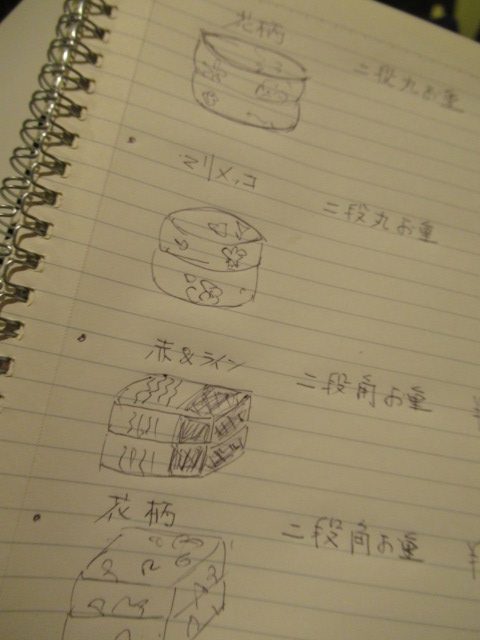 花柄
二段丸お重
マリメッコ
二段丸お重
赤&ライン
二段角お重
花柄
二段角お重